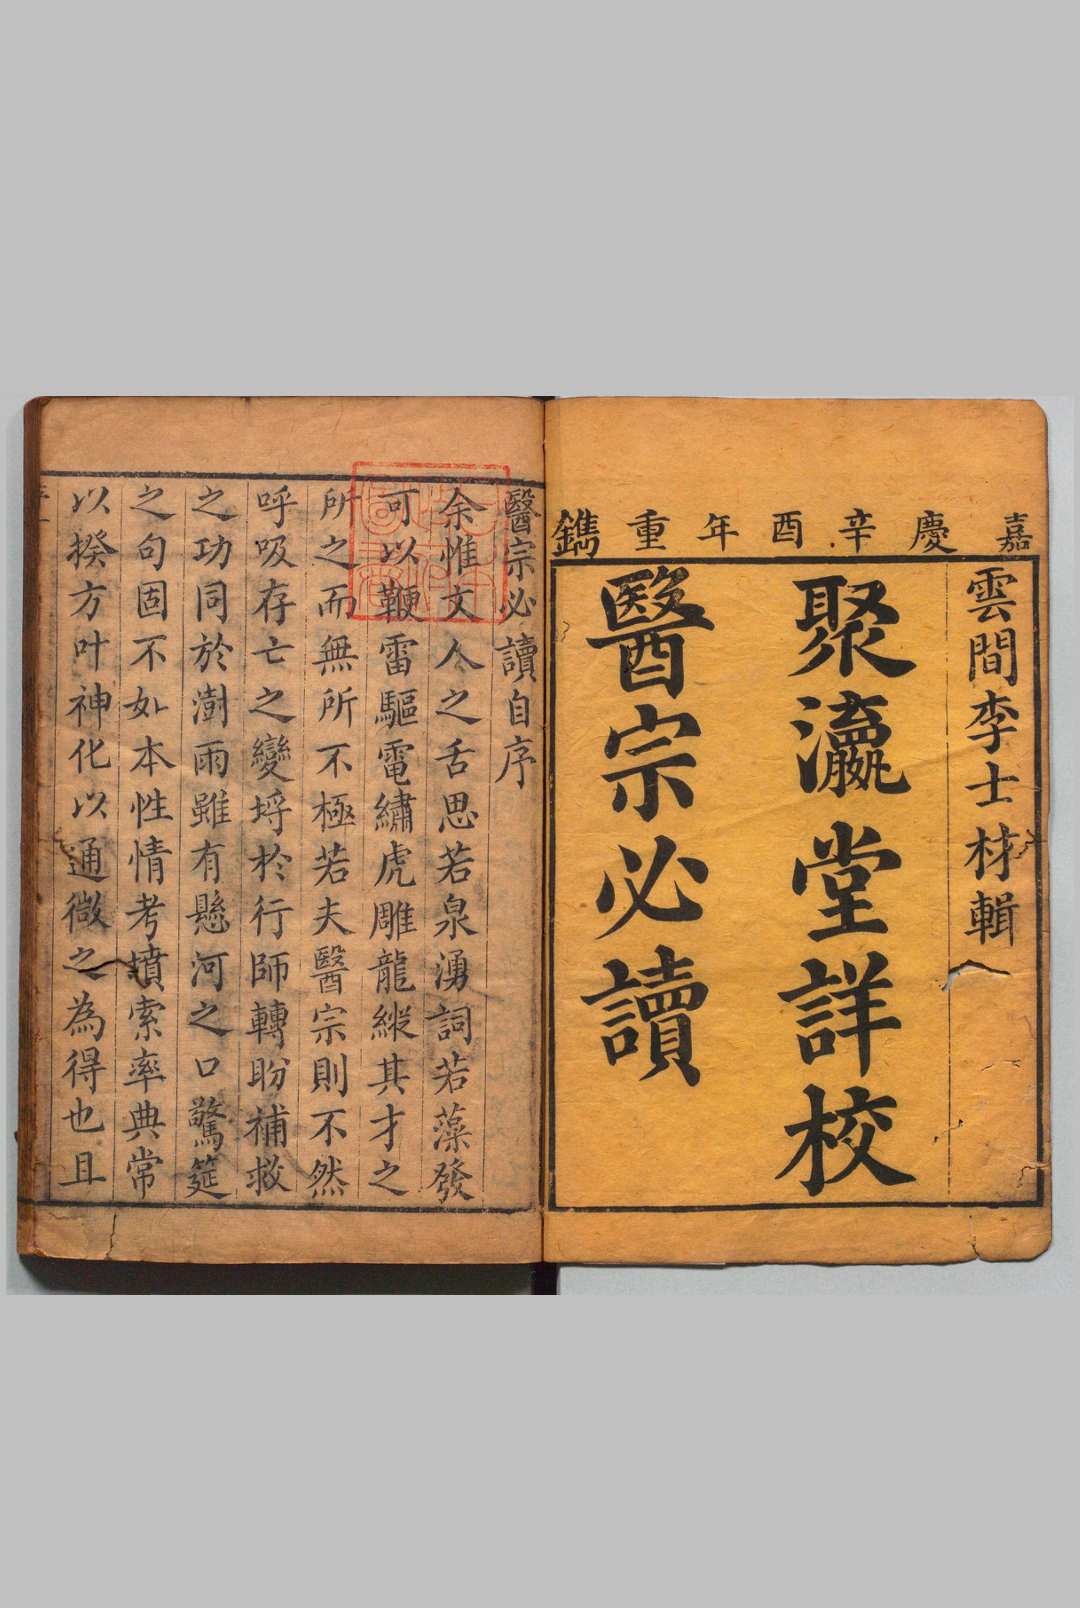 嘉慶辛酉年重鐫
雲間李士材輯
聚瀛堂詳校
醫宗必讀
醫宗必讀自序
余惟文人之舌思若泉湧詞若藻發
可以鞭雷驅電繡虎雕龍縱其才之
所之而無所不極若夫醫宗則不然
呼吸存亡之變埒於行師轉盼補救
之功同於澍雨雖有懸河之口驚筵
之句固不如本性情考墳索率典常
以揆方叶神化以通微之為得也且